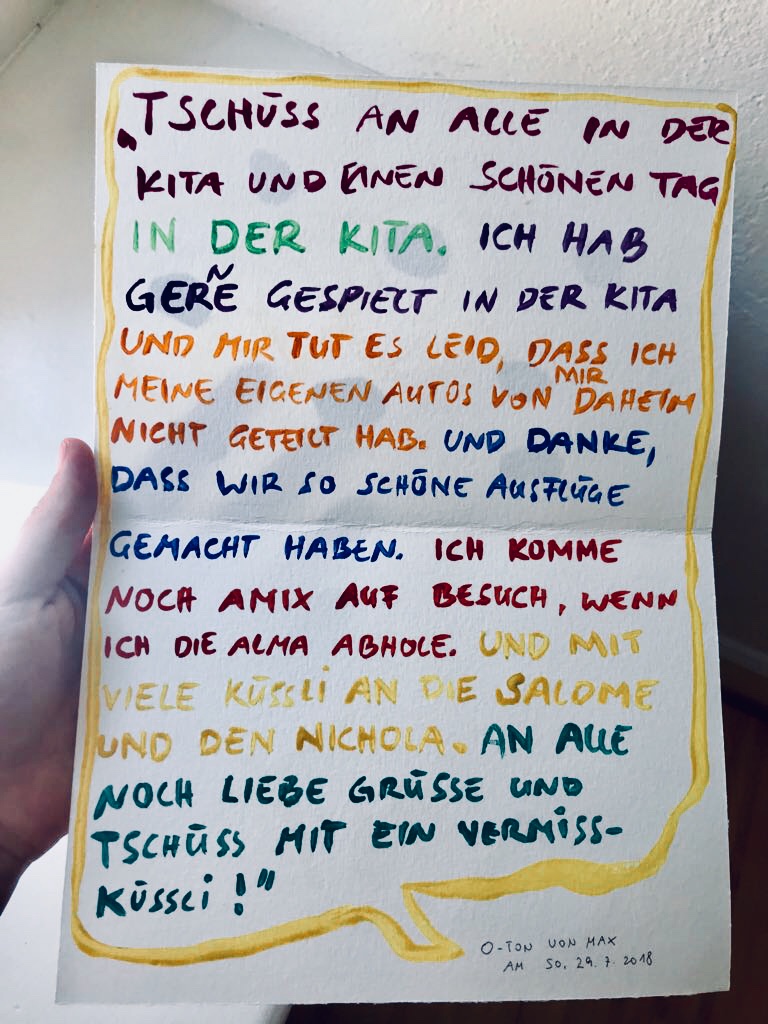 „TSCHÜSS AN ALLE IN DER
KITA UND EINEN SCHÖNEN TAG
IN DER KITA. ICH HAB
GERÑE GESPIELT IN DER KITA
UND MIR TUT ES LEID, DASS ICH
MEINE EIGENEN AUTOS VON MIR DAHEIM
NICHT GETEILT HAB. UND DANKE,
DASS WIR SO SCHÖNE AUSFLÜGE
GEMACHT HABEN. ICH KOMME
NOCH AMIX AUF BESUCH, WENN
ICH DIE ALMA ABHOLE. UND MIT
VIELE KÜSSLI AN DIE SALOME
UND DEN NICHOLA. AN ALLE
NOCH LIEBE GRÜSSE UND
TSCHÜSS MIT EIN VERMISS-
KÜSSLI!"
O-TON VON MAX
AM SO. 29.7.2018